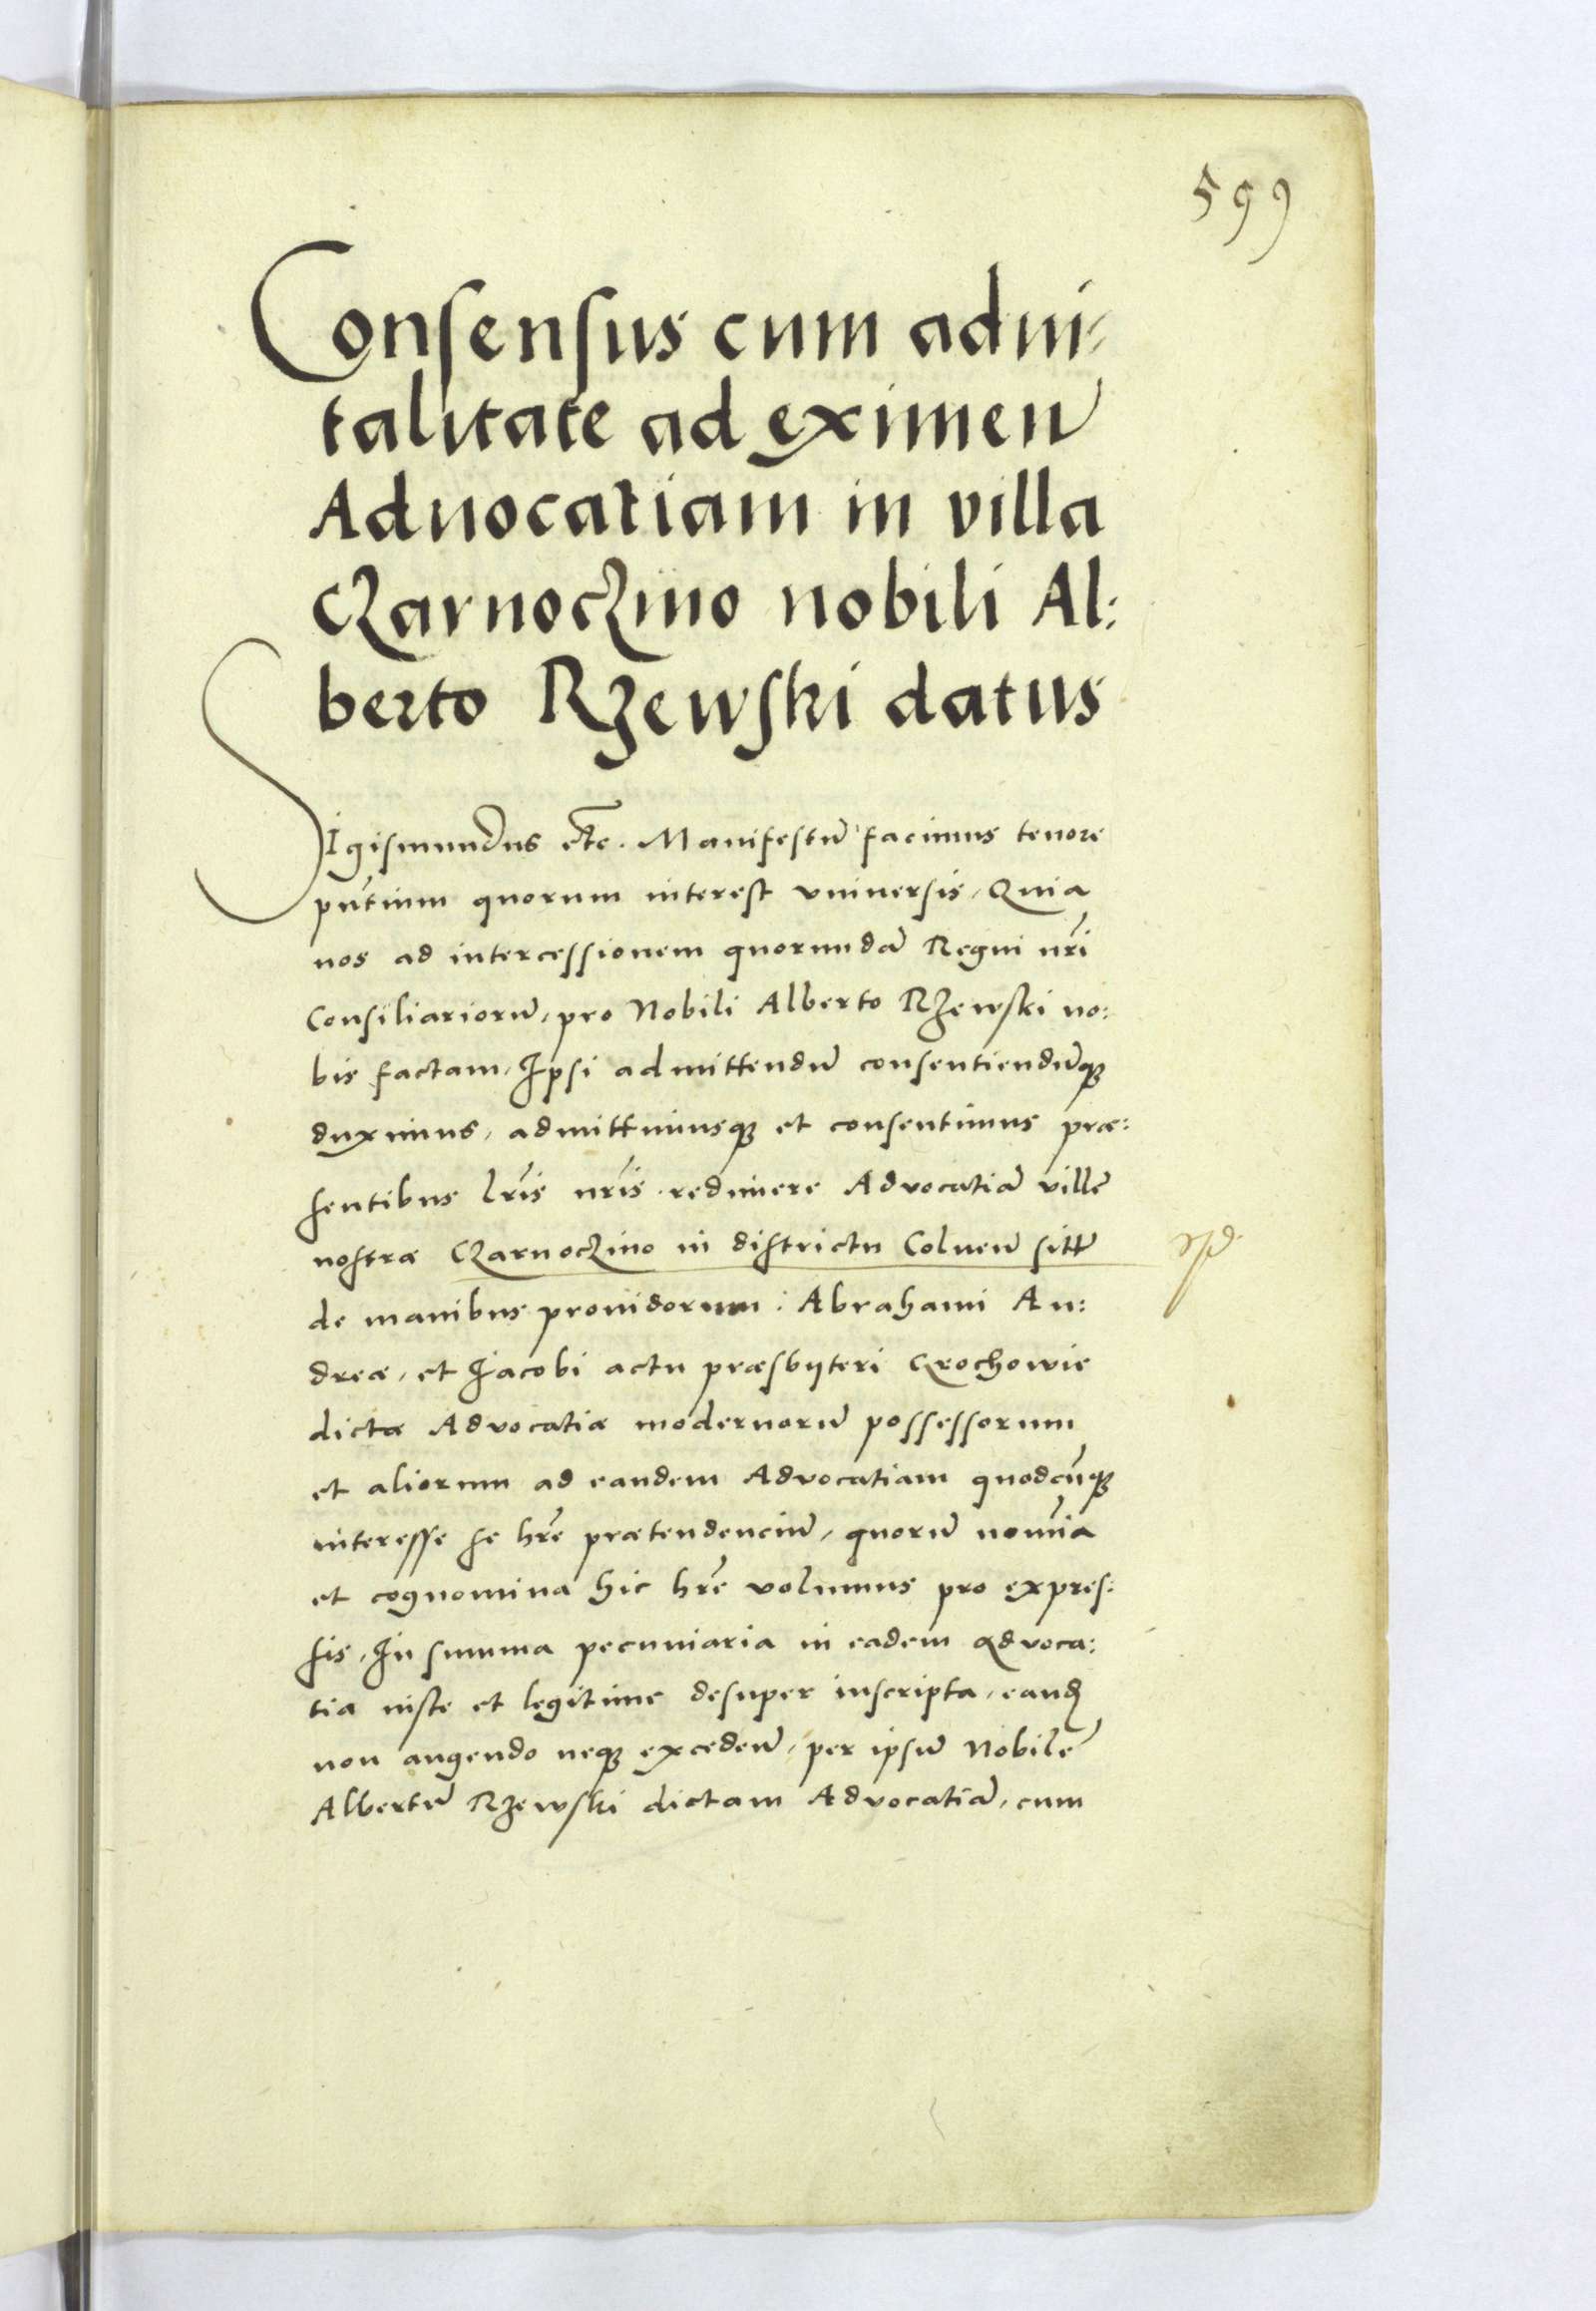 599
Consensus cum advi-
talitate ad eximen̄
Advocatiam in villa
Czarnoczino nobili Al:
berto Rzewski datus
Sigismundus etc. Manifestū facimus tenore
pn̄tium quorum interest vniuersis, Quia
nos ad intercessionem quorundā Regni nr̄i
Consiliariorū, pro Nobili Alberto Rzewski no:
bis factam, Ipsi admittendū consentiendūq3
duximus, admittimusq3 et consentimus præ:
sentibus lr̄is nr̄is redimere Advocatiā villę
nostræ Czarnoczino in districtu Colnen̄ sitt̄
de manibus prouidorum: Abrahami An:
dreæ, et Iacobi actu præsbyteri Czochowie
dictæ Advocatiæ modernorū possessorum
et aliorum ad eandem Advocatiam quodcūq3
interesse se hr̄e prætendenciū, quorū nom̄ia
et cognomina hic hr̄e volumus pro expres:
sis, In summa pecuniaria in eadem Advoca:
tia iuste et legitime desuper inscripta, eand̄
non augendo neq3 exceden̄, per ipsū Nobilē
Albertū Rzewski dictam Advocatiā, cum